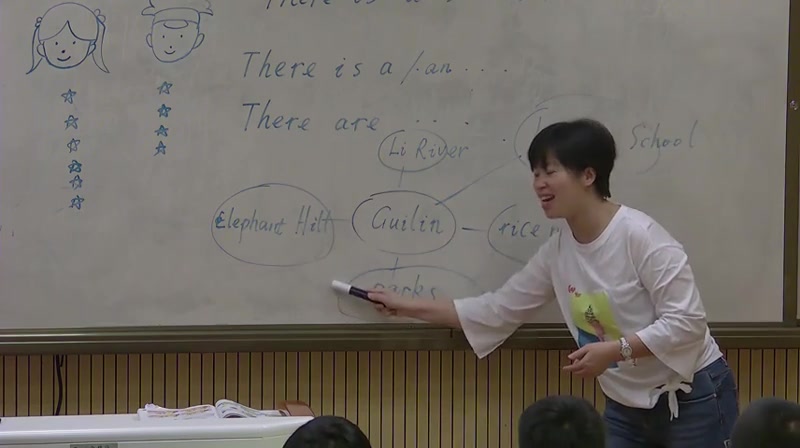 There is a
There is a / an ...
There are ...
Li River
School
Elephant Hill
Guilin
rice
parks